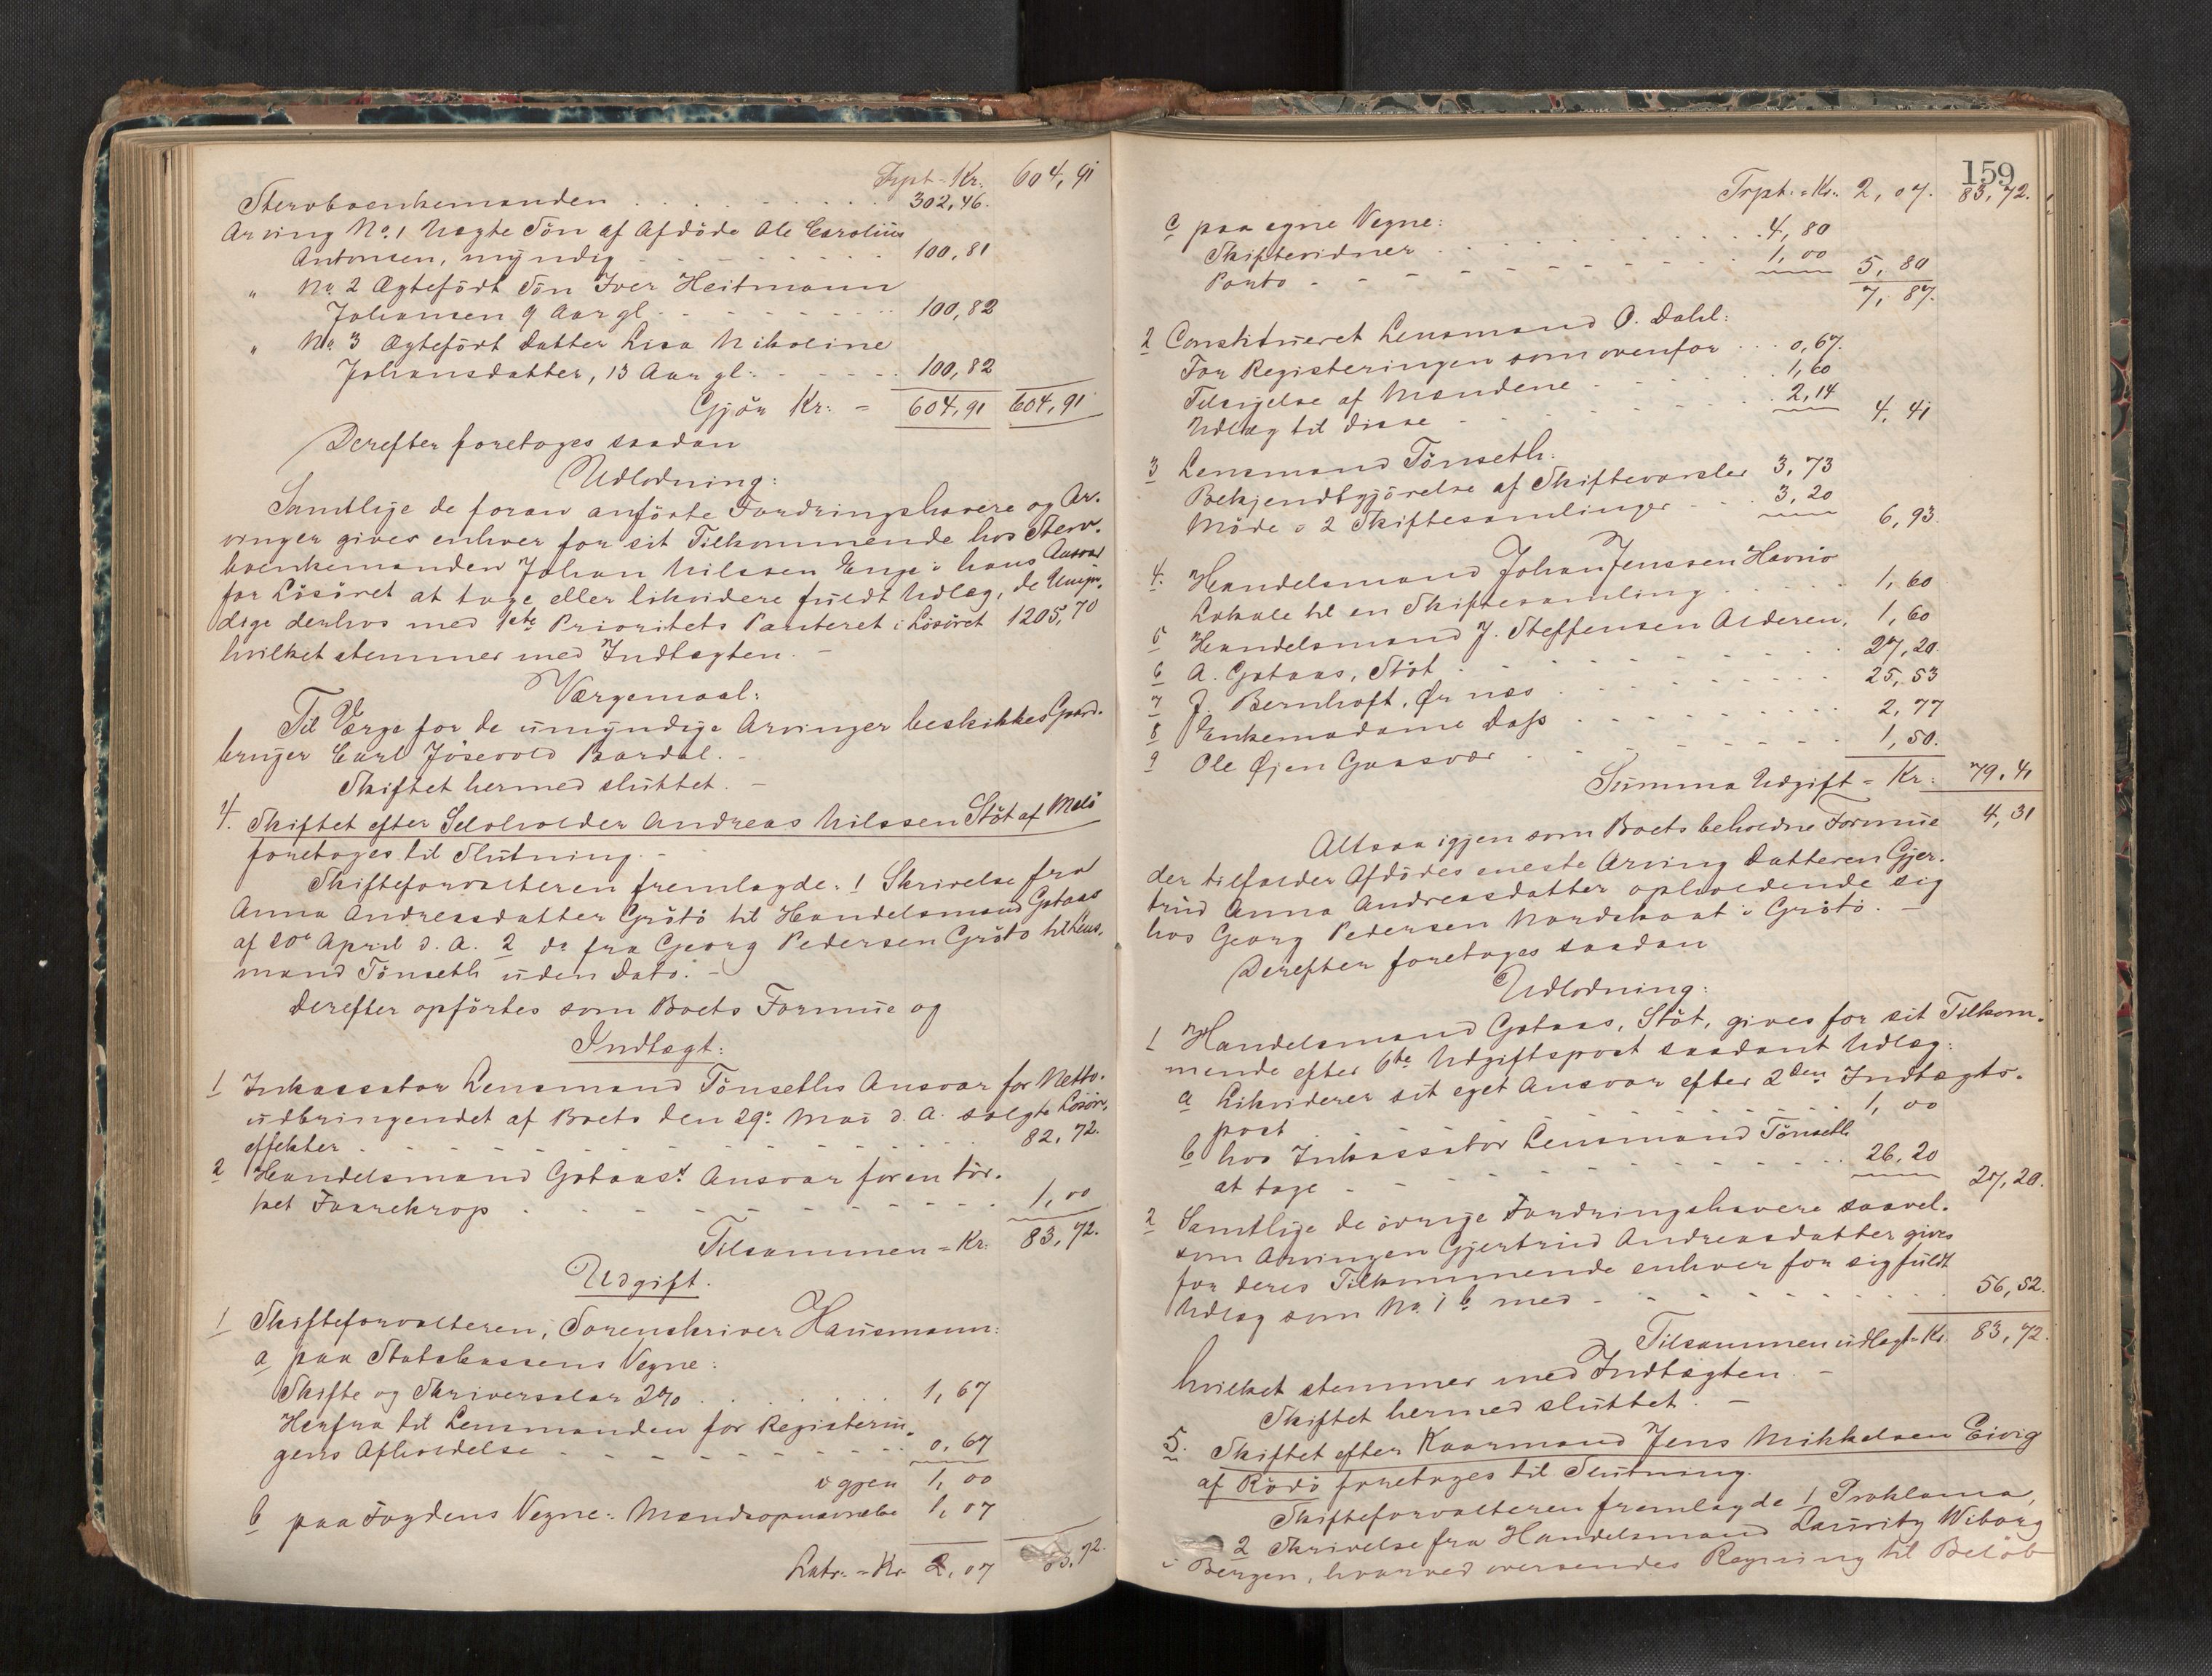 Trpt. Kr. 604,91
Stervboenkemanden . . . . . . . . . . 302,46.
Arving No. 1 Uægte Sön af Afdöde Ole Carolius
Antonsen, myndig - - - - - - - - 100,81
" No. 2 Ægtefödt Sön Iver Heitmann
Johansen 9 Aar gl. - - - - - - - 100,82
" No. 3 Ægtefödt Datter Lisa Nikoline
Johansdatter, 13 Aar gl: - - - - - 100,82
Gjör Kr: = 604,91 604,91
Derefter foretoges saadan
Udlodning:
Samtlige de foran anförte Fordringshavere og Ar-
vinger gives enhver for sit Tilkommende hos Sterv-
boenkemanden Johan Nilssen Enge i hans Ansvar
for Lösöret at tage eller likvidere fuldt Udlæg, de Umyn-
dige derhos med 1ste Prioritets Panteret i Lösöret 1205,70
hvilket stemmer med Indtægten. -
Værgemaal:
Til Værge for de umyndige Arvinger beskikkes Gaard-
bruger Carl Jösevold Bardal. -
Skiftet hermed sluttet. -
4. Skiftet efter Selvholder Andreas Nilssen Stöt af Melö
foretoges til Slutning. -
Skifteforvalteren fremlagde: 1 Skrivelse fra
Anna Andreasdatter Grötö til Handelsmand Gotaas
af 20de April d. A. 2 do fra Georg Pedersen Grötö til Lens-
mand Tönseth uden Dato. -
Derefter opförtes som Boets Formue og
Indtægt:
1 Inkassator Lensmand Tönseths Ansvar for Netto-
udbringendet af Boets den 29de Mai d. A. solgte Lösöre-
effekter . - - - - - - - - - 82,72.
2 Handelsmand Gotaas's Ansvar for en tör-
ket Faarekrop . - - - - - - - - 1,00
Tilsammen = Kr: 83,72.
Udgift.
1 Skifteforvalteren, Sorenskriver Hausmann:
a paa Statskassens Vegne:
Skifte og Skriversalær 2% . . . . . . . 1,67
Herfra til Lensmanden for Registerin-
gens Afholdelse - - - - - - - - 0,67
igjen 1,00
b paa Fogdens Vegne: Mandsopnævnelse 1,07
Latr. = Kr. 2,07 83,72.
159
Trpt. = Kr: 2,07. 83,72.
c paa egne Vegne:
Skiftevidner . . . . . . . . . 4,80
Porto - - - - - - - - 1,00 5,80
7,87.
2 Constitueret Lensmand O. Dahl:
For Registeringen som ovenfor . . . 0,67.
Tilsigelse af Mændene - - - - 1,60
Udlæg til disse - - - - - - 2,14 4,41
3 Lensmand Tönseth:
Bekjendtgjörelse af Skiftevarsler 3,73
Möde i 2 Skiftesamlinger - - - 3,20 6,93.
4. Handelsmand Johan Jenssen Havnö
Lokale til en Skiftesamling - - - - 1,60
5 Handelsmand J. Steffensen Alderen, 1,60
6 A. Gotaas, Stöt - - - - - - - - - 27,20.
7 J. Bernhoft, Ørnæs - - - - - - - 25,53
8 Enkemadame Dass - - - - - - - 2,77
9 Ole Øjen Gaasvær - - - - - - - 1,50.
Summa Udgift = Kr: 79,41
Altsaa igjen som Boets beholdne Formue 4,31
der tilfalder Afdödes eneste Arving Datteren Gjer-
trud Anna Andreasdatter opholdende sig
hos Georg Pedersen Nordskaat i Grötö. -
Derefter foretoges saadan
Udlodning:
1 Handelsmand Gotaas, Stöt, gives for sit Tilkom-
mende efter 6te Udgiftspost saadant Udlæg:
a Likviderer sit eget Ansvar efter 2den Indtægts-
post . - - - - - - - - - 1,00
b hos Inkassator Lensmand Tönseth
at tage - - - - - - - - 26,20 27,20.
2 Samtlige de övrige Fordringshavere saavel-
som Arvingen Gjertrud Andreasdatter gives
for deres Tilkommende enhver for sig fuldt
Udlæg som No. 1 b med - - - - - - - 56,52.
Tilsammen udlagt = Kr. 83,72.
hvilket stemmer med Indtægten. -
Skiftet hermed sluttet. -
5. Skiftet efter Kaarmand Jens Mikkelsen Eivig
af Rödö foretoges til Slutning.
Skifteforvalteren fremlagde 1 Proklama,
2 Skrivelse fra Handelsmand Lauritz Wiborg
i Bergen, hvorved oversendes Regning til Belöb